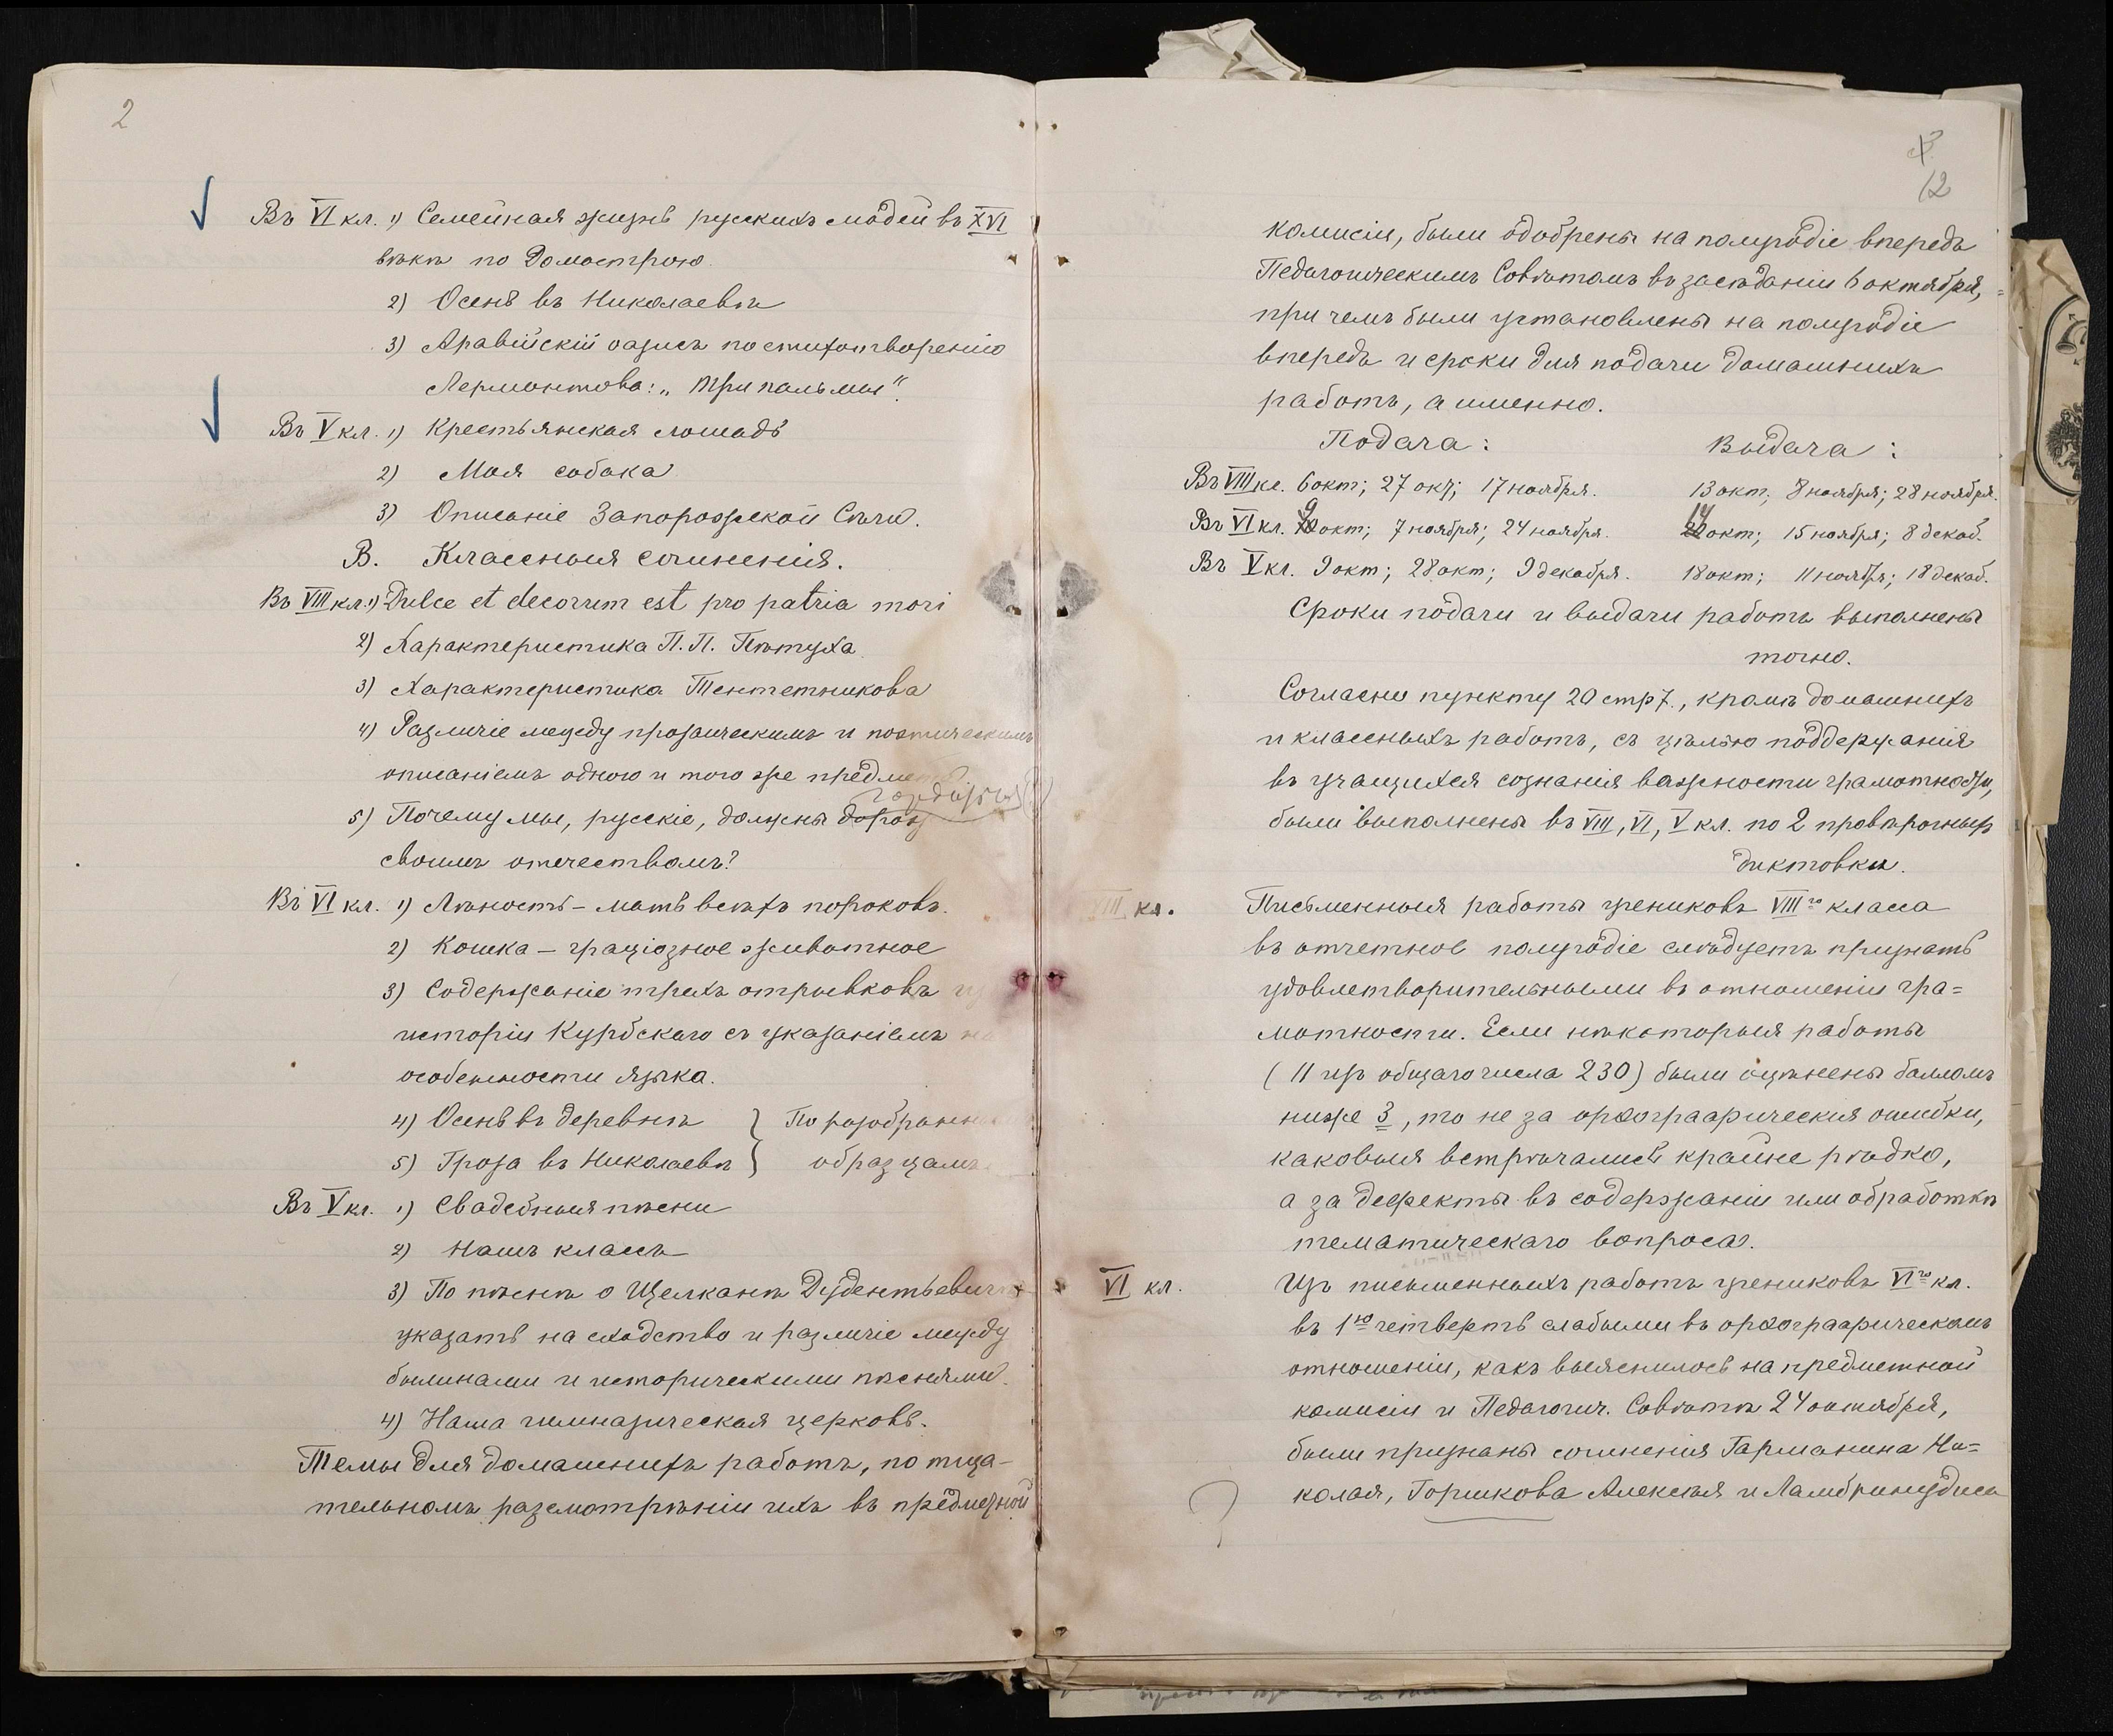 2
Въ VI кл. 1) Семейная жизнь русскихъ людей въ XVI
вѣкѣ по Домострою.
2) Осень въ Николаевѣ
3) Аравійскій оазисъ по стихотворенію
Лермонтова: „Три пальмы“.
Въ V кл. 1) Крестьянская лошадь
2) Моя собака
3) Описаніе Запорожской Сѣчи.
В. Классныя сочиненія.
Въ VIII кл. 1) Dulce et decorum est pro patria mori
2) Характеристика П. П. Пѣтуха
3) Характеристика Тентетникова
4) Различіе между прозаическимъ и поэтическимъ
описаніемъ одного и того же предме
гордиться (?)
5) Почему мы, русскіе, должны
своимъ отечествомъ?
Въ VI кл. 1) Лѣность – мать всѣхъ пороковъ.
2) Кошка – граціозное животное
3) Содержаніе трехъ отрывковъ
исторіи Курбскаго съ указаніемъ на
особенности языка.
4) Осень въ деревнѣ } По разобранн
5) Гроза въ Николаевѣ } образцамъ
Въ V кл. 1) Свадебныя пѣсни
2) Нашъ классъ
3) По пѣснѣ о Щелканѣ Дудентьевичѣ
указать на сходство и различіе между
былинами и историческими пѣснями.
4) Наша гимназическая церковь.
Темы для домашнихъ работъ, по тща-
тельномъ разсмотрѣніи ихъ въ предметной
12
комисіи, были одобрены на полугодіе впередъ
Педагогическимъ Совѣтомъ въ засѣданіи 6 октября,
при чемъ были установлены на полугодіе
впередъ и сроки для подачи домашнихъ
работъ, а именно.
Подача: Выдача:
Въ VIII кл. 6 окт; 27 окт; 17 ноября. 13 окт; 8 ноября; 28 ноября.
Въ VI кл. 9 окт; 7 ноября; 24 ноября. 14 окт; 15 ноября; 8 декаб.
Въ V кл. 9 окт; 28 окт; 9 декабря. 18 окт; 11 ноября; 18 декаб.
Сроки подачи и выдачи работъ выполнены
точно.
Согласно пункту 20 стр 7., кромѣ домашнихъ
и классныхъ работъ, съ цѣлью поддержанія
въ учащихся сознанія важности грамотности,
были выполнены въ VIII, VI, V кл. по 2 провѣрочныхъ
диктовки.
VIII кл. Письменныя работы учениковъ VIII го класса
въ отчетное полугодіе слѣдуетъ признать
удовлетворительными въ отношеніи гра=
мотности. Если нѣкоторыя работы
(11 изъ общаго числа 230) были оцѣнены балломъ
ниже 3, то не за орѳографическія ошибки,
каковыя встрѣчались крайне рѣдко,
а за дефекты въ содержаніи или обработкѣ
тематическаго вопроса.
VI кл. Изъ письменныхъ работъ учениковъ VI го кл.
въ 1 ую четверть слабыми въ орѳографическомъ
отношеніи, какъ выяснилось на предметной
комисіи и Педагогич. Совѣтѣ 24 октября,
были признаны сочиненія Гарманина Ни=
колая, Горшкова Алексѣя и Ламбринудиса